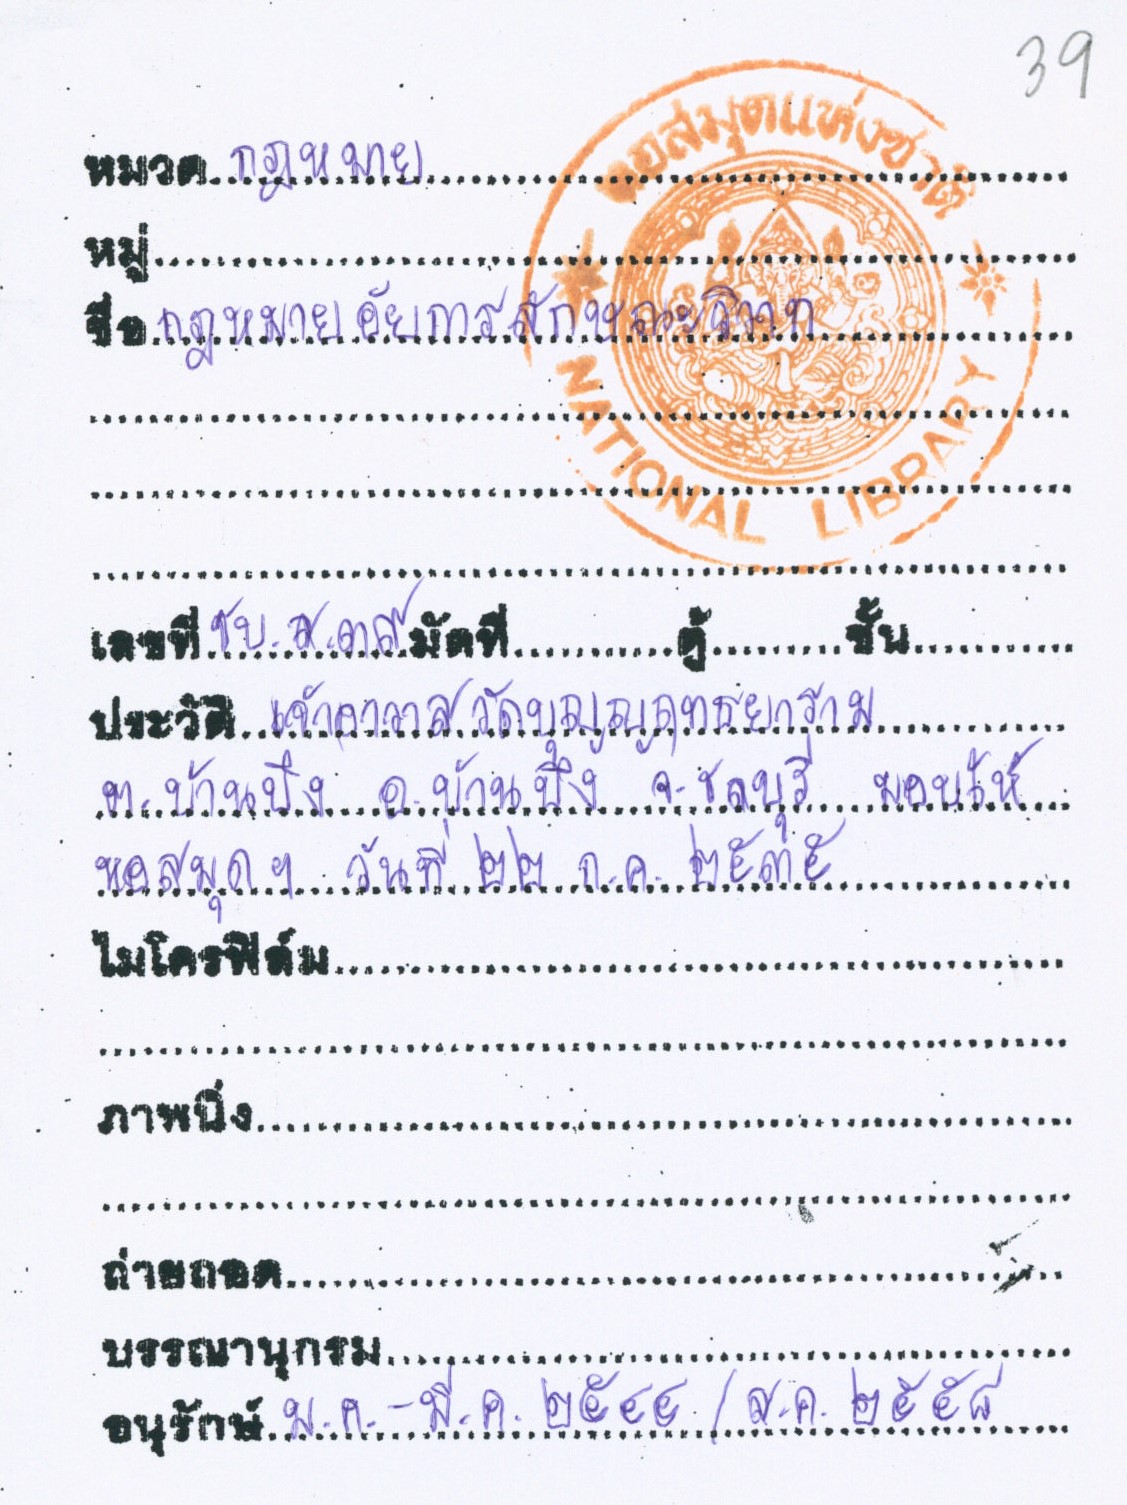 39
หอสมุดแห่งชาติ
NATIONAL LIBRARY
หมวด กฎหมาย
หมู่
ชื่อ กฎหมายอัยการลักษณะวิวาท
เลขที่ ชบ.ส.๓๙ มัดที่ ตู้ ชั้น
ประวัติ เจ้าอาวาสวัดบุญญฤทธยาราม
ต.บ้านบึง อ.บ้านบึง จ.ชลบุรี มอบให้
หอสมุดฯ วันที่ ๒๒ ก.ค. ๒๕๓๕
ไมโครฟิล์ม
ภาพนิ่ง
ถ่ายถอด
บรรณานุกรม
อนุรักษ์ ม.ค.-มี.ค. ๒๕๔๔ / ส.ค. ๒๕๕๘